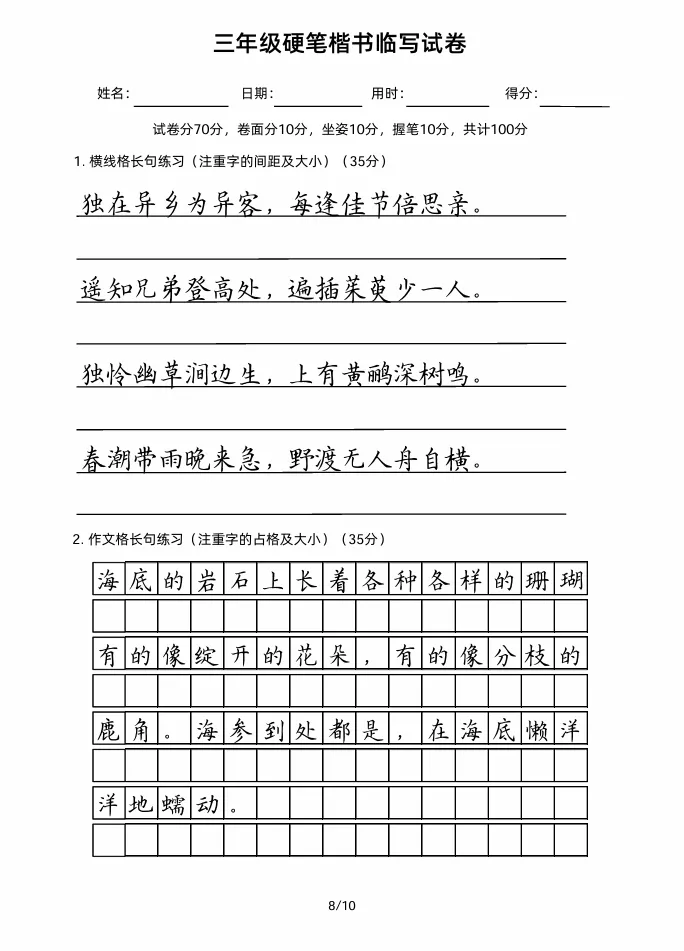 三年级硬笔楷书临写试卷
姓名： 日期： 用时： 得分：
试卷分70分，卷面分10分，坐姿10分，握笔10分，共计100分
1. 横线格长句练习（注重字的间距及大小）（35分）
独在异乡为异客，每逢佳节倍思亲。
遥知兄弟登高处，遍插茱萸少一人。
独怜幽草涧边生，上有黄鹂深树鸣。
春潮带雨晚来急，野渡无人舟自横。
2. 作文格长句练习（注重字的占格及大小）（35分）
海底的岩石上长着各种各样的珊瑚
有的像绽开的花朵，有的像分枝的
鹿角。海参到处都是，在海底懒洋
洋地蠕动。
8/10